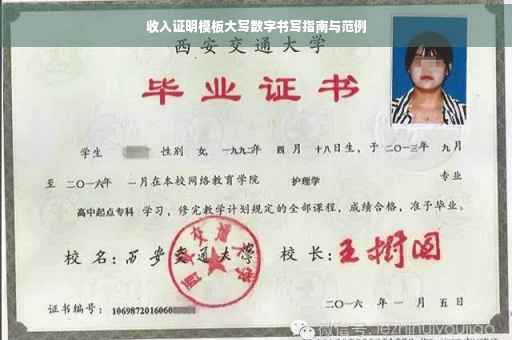 收入证明模板大写数字书写指南与范例
西安交通大学
毕业证书
学生 性别 女, 一九九二年 四 月 十八日生, 于 二〇一三年 九月
至 二〇一六年 一月在本校网络教育学院 护理学 专业
高中起点专科 学习, 修完教学计划规定的全部课程, 成绩合格, 准予毕业。
校 名: 西安交通大学 校 长: 王树国
西安交通大学
证书编号: 1069872016060 二〇一六 年 一 月 五 日
微信号: jiezhihuiyoujiao